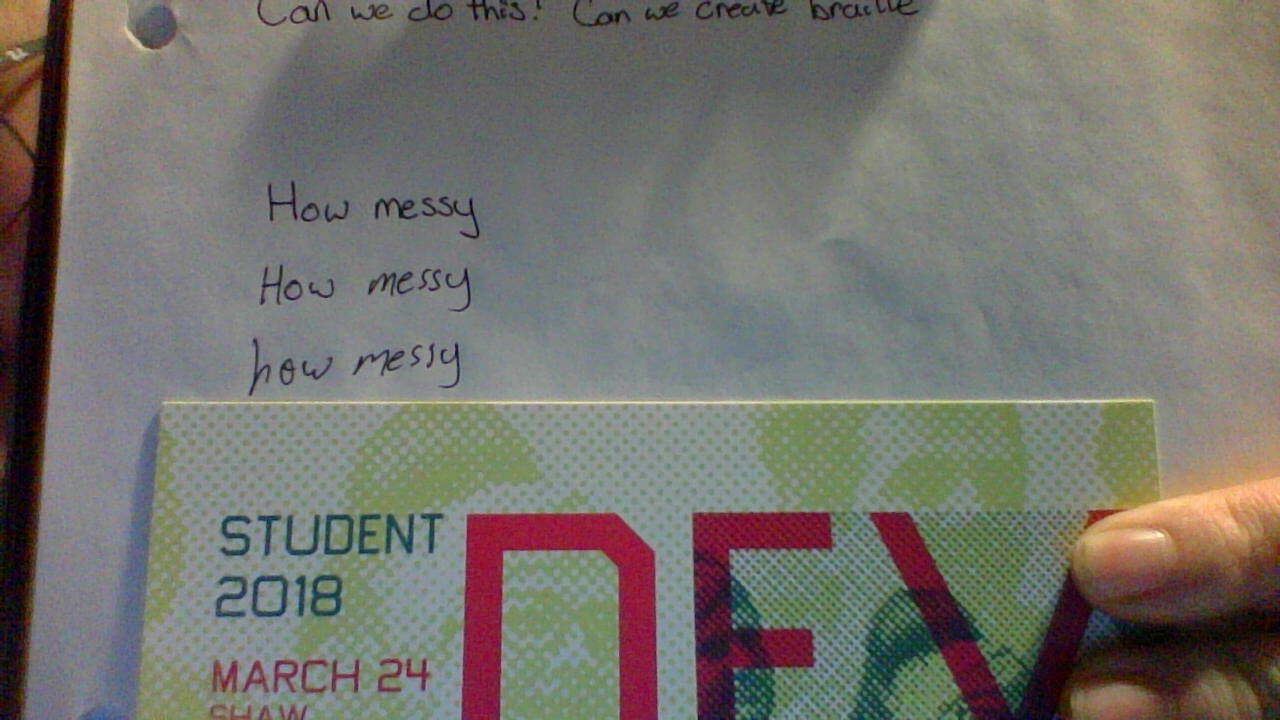 Can we do this! Can we create braille
How messy
How messy
how messy
STUDENT
2018
MARCH 24
SHAW
DEV